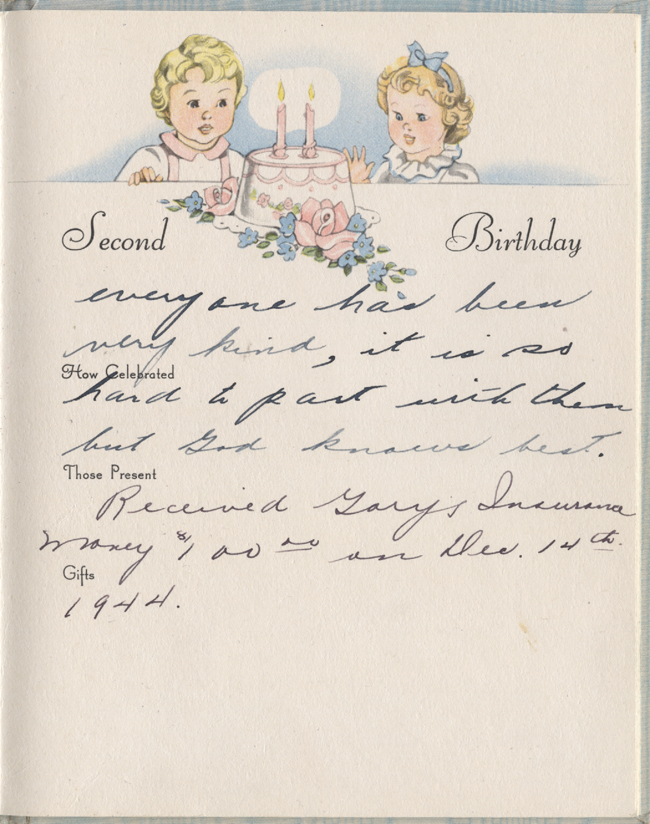 Second Birthday
everyone has been
very kind, it is so
How Celebrated
hard to part with them
but God knows best.
Those Present
Received Gary's Insurance
money $100 00 on Dec. 14th.
Gifts
1944.